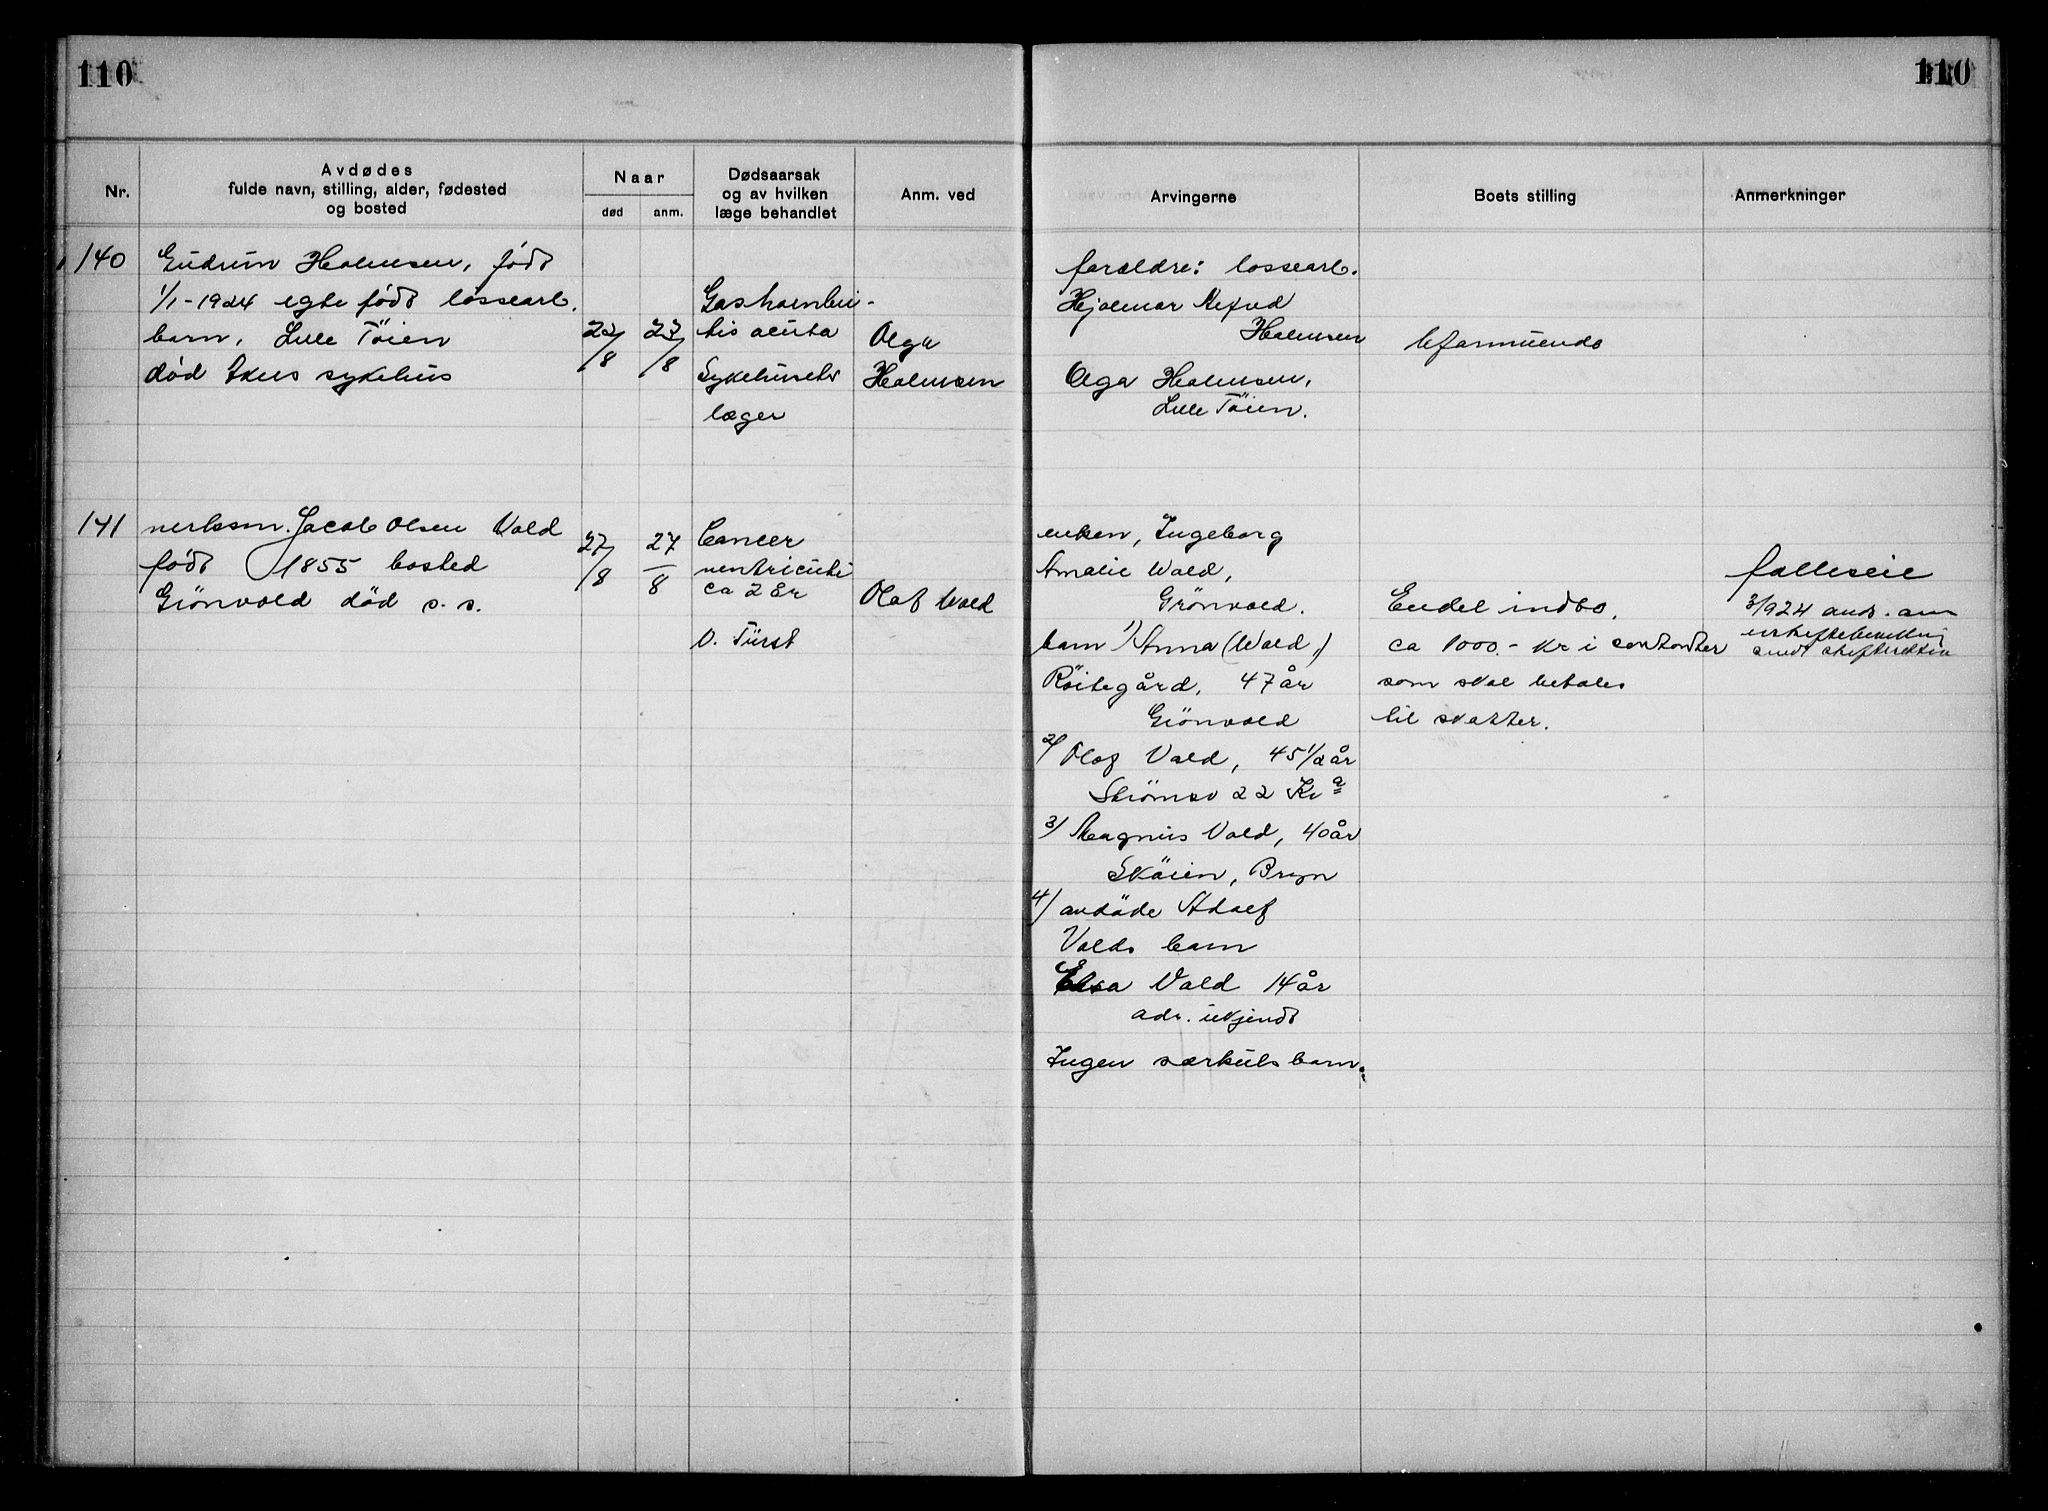 110
110
Nr.
Avdødes
fulde navn, stilling, alder, fødested
og bosted
Naar
død
anm.
Dødsaarsak
og av hvilken
læge behandlet
Anm. ved
Arvingerne
Boets stilling
Anmerkninger
140
Gudrun Holmsen, født
1/1-1924 egte født lossearb.
barn, Lille Töien
død Akers sykehus
22/8
23/8
Gastroenteri-
tis acuta
Sykehusets
læger
Olga
Holmsen
foreldre: lossearb.
Hjalmar
Holmsen
Olga Holmsen,
Lille Töien.
uformuende
141
verksm. Jacob Olsen Vold
født 1855 bosted
Grönvold död s. s.
27/8
27/8
Cancer
ventriculi
ca 2 år
D. Fürst
Olaf Wold
enken, Ingeborg
Amalie Wold,
Grönvold.
barn 1) Anna (Wold,)
Röitegård, 47 år
Grönvold
2) Olaf Vold, 45 1/2 år
Strömsv 22 Kr a
3) Magnus Vold, 40 år
Sköien, Bryn
4) avdöde Adolf
Volds barn
Elsa Vold 14 år
adr. ukjendt
Ingen særkulsbarn.
Endel indbo,
ca 1000.- kr i contanter
som skal betales
til skatter.
felleseie
3/924 ands. om
uskiftebevilling
sendt skifteretten